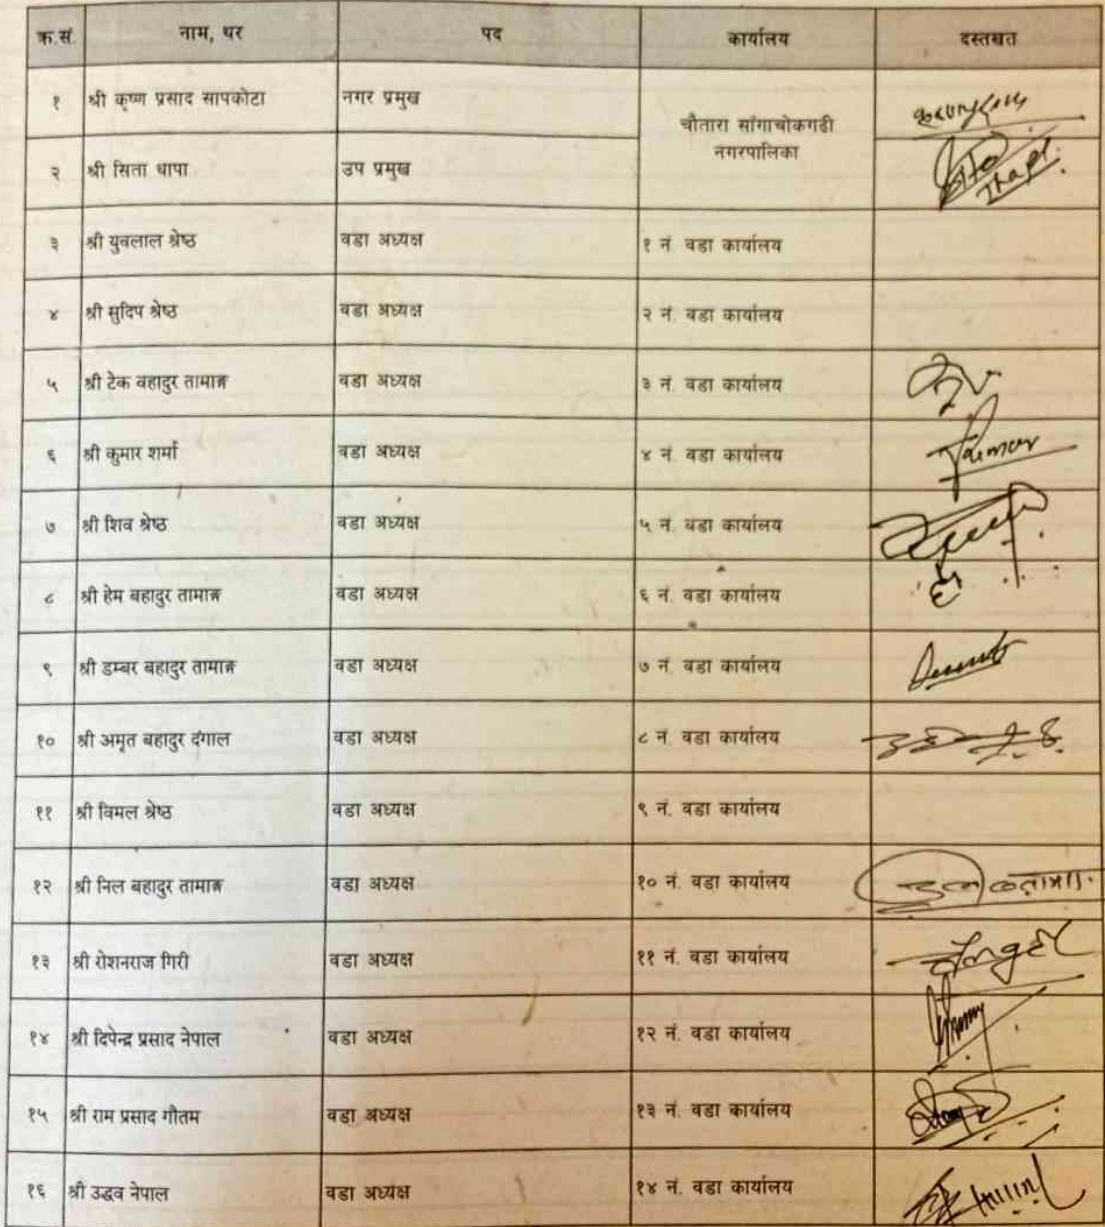 क्र.सं. नाम, थर पद कार्यालय दस्तखत
१ श्री कृष्ण प्रसाद सापकोटा नगर प्रमुख
चौतारा सांगाचोकगढी
नगरपालिका
२ श्री सिता थापा उप प्रमुख
३ श्री युवलाल श्रेष्ठ वडा अध्यक्ष १ नं. वडा कार्यालय
४ श्री सुदिप श्रेष्ठ वडा अध्यक्ष २ नं. वडा कार्यालय
५ श्री टेक वहादुर तामाङ्ग वडा अध्यक्ष ३ नं. वडा कार्यालय
६ श्री कुमार शर्मा वडा अध्यक्ष ४ नं. वडा कार्यालय
७ श्री शिव श्रेष्ठ वडा अध्यक्ष ५ नं. वडा कार्यालय
८ श्री हेम बहादुर तामाङ्ग वडा अध्यक्ष ६ नं. वडा कार्यालय
९ श्री डम्बर बहादुर तामाङ्ग वडा अध्यक्ष ७ नं. वडा कार्यालय
१० श्री अमृत बहादुर दंगाल वडा अध्यक्ष ८ नं. वडा कार्यालय
११ श्री विमल श्रेष्ठ वडा अध्यक्ष ९ नं. वडा कार्यालय
१२ श्री निल बहादुर तामाङ्ग वडा अध्यक्ष १० नं. वडा कार्यालय
१३ श्री रोशनराज गिरी वडा अध्यक्ष ११ नं. वडा कार्यालय
१४ श्री दिपेन्द्र प्रसाद नेपाल वडा अध्यक्ष १२ नं. वडा कार्यालय
१५ श्री राम प्रसाद गौतम वडा अध्यक्ष १३ नं. वडा कार्यालय
१६ श्री उद्धव नेपाल वडा अध्यक्ष १४ नं. वडा कार्यालय